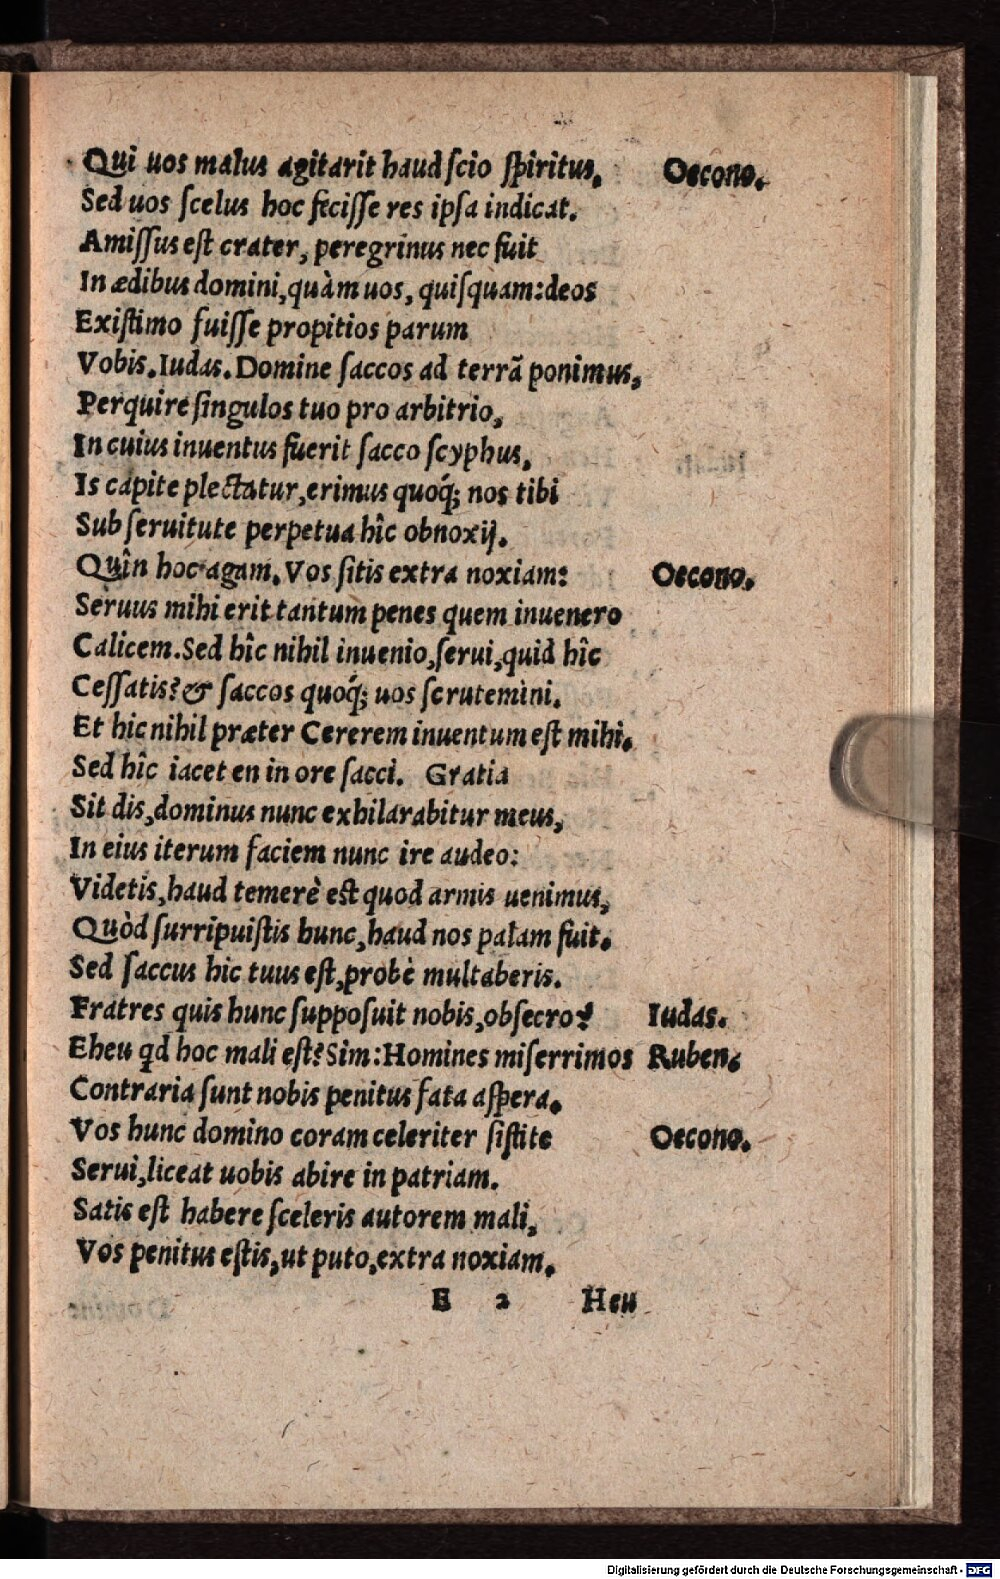 Qui uos malus agitarit haud scio spiritus, Oecono.
Sed uos scelus hoc fecisse res ipsa indicat.
Amissus est crater, peregrinus nec fuit
In ædibus domini, quàm uos, quisquam: deos
Existimo fuisse propitios parum
Vobis. Iudas. Domine saccos ad terrā ponimus,
Perquire singulos tuo pro arbitrio,
In cuius inuentus fuerit sacco scyphus,
Is capite plectatur, erimus quoq́; nos tibi
Sub seruitute perpetua hîc obnoxij.
Quîn hoc agam. Vos sitis extra noxiam: Oecono.
Seruus mihi erit tantum penes quem inuenero
Calicem. Sed hîc nihil inuenio, serui, quid hîc
Cessatis? & saccos quoq́; uos scrutemini.
Et hic nihil præter Cererem inuentum est mihi.
Sed hîc iacet en in ore sacci. Gratia
Sit dis, dominus nunc exhilarabitur meus,
In eius iterum faciem nunc ire audeo:
Videtis, haud temerè est quod armis uenimus,
Quòd surripuistis hunc, haud nos palam fuit.
Sed saccus hic tuus est, probè multaberis.
Fratres quis hunc supposuit nobis, obsecro? Iudas.
Eheu qd hoc mali est? Sim: Homines miserrimos Ruben.
Contraria sunt nobis penitus fata aspera.
Vos hunc domino coram celeriter sistite Oecono.
Serui, liceat uobis abire in patriam.
Satis est habere sceleris autorem mali,
Vos penitus estis, ut puto, extra noxiam.
E 2 Heu
Digitalisierung gefördert durch die Deutsche Forschungsgemeinschaft - DFG